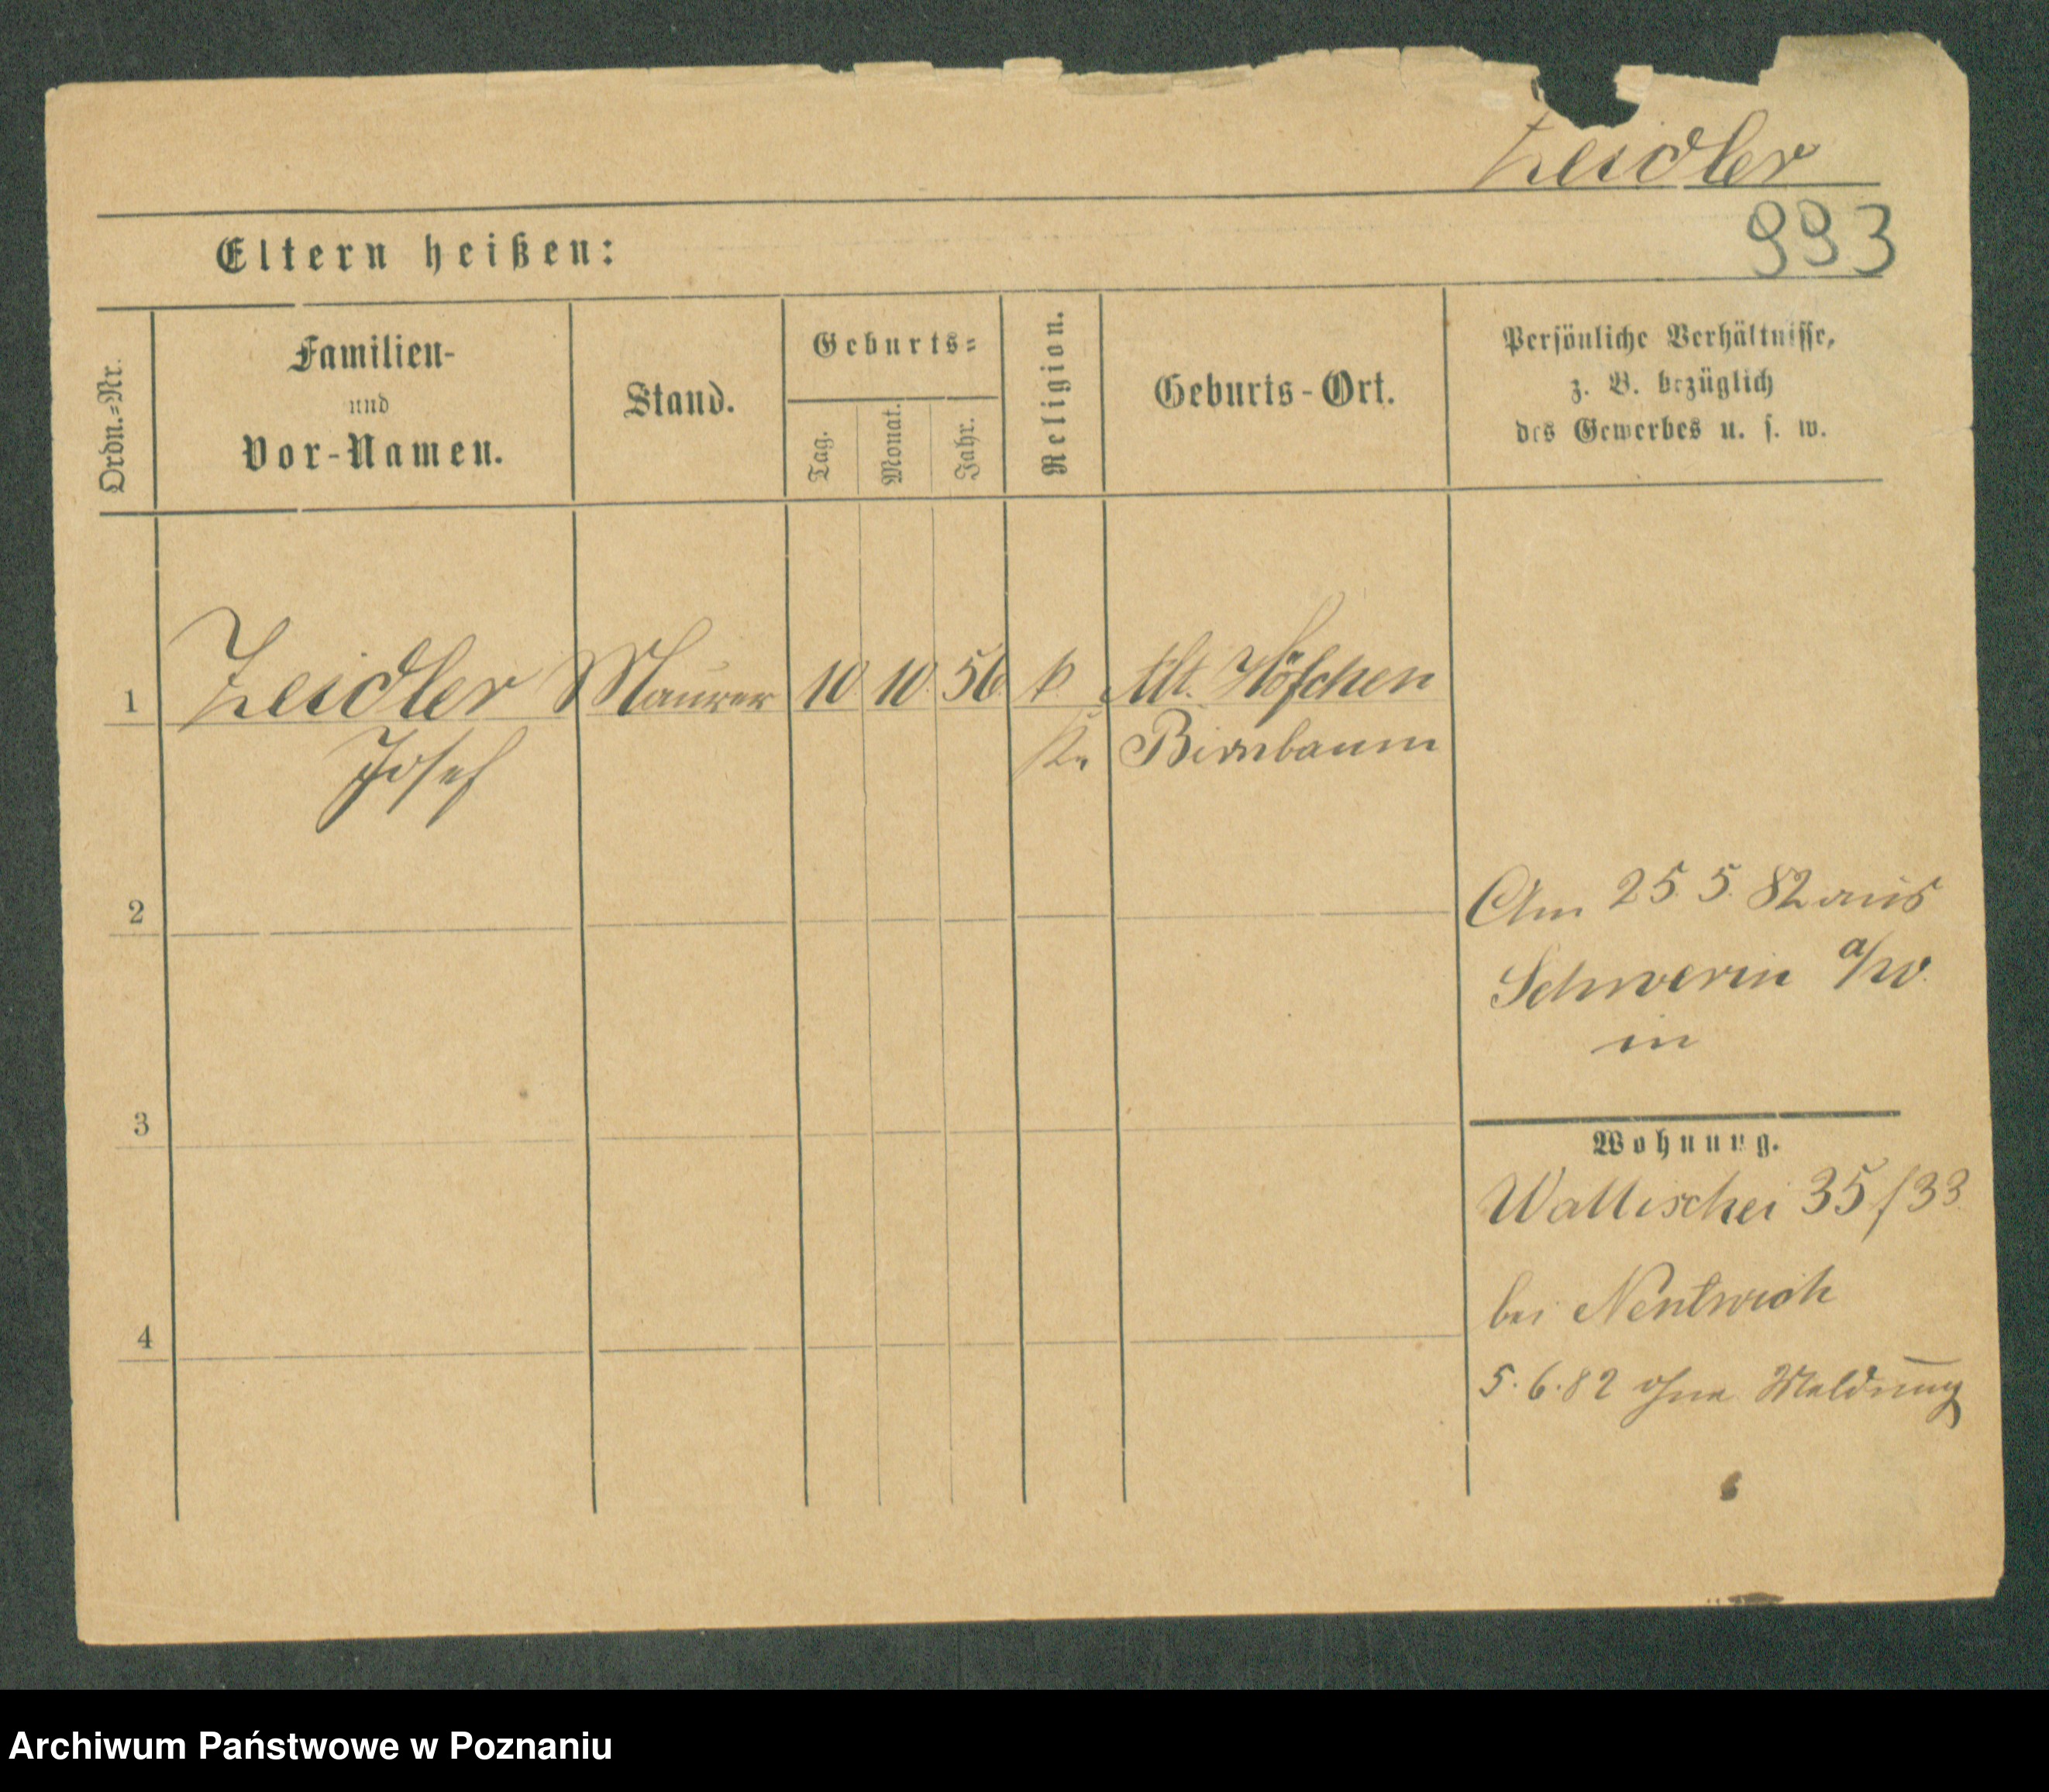 Zeidler
993
Eltern heißen:
Ordn.=Nr.
Familien-
und
Vor-Namen.
Stand.
Geburts=
Tag.
Monat.
Jahr.
Religion.
Geburts-Ort.
Persönliche Verhältnisse,
z. B. bezüglich
des Gewerbes u. s. w.
1 Zeidler Maurer 10 10. 56. k. Alt. Höfchen
Josef Kr. Birnbaum
2
Am 25. 5. 82 aus
Schwerin a/w.
in
3
Wohnung.
Wallischei 35/33.
bei Nentwich
4
5.6.82 ohne Meldung
Archiwum Państwowe w Poznaniu